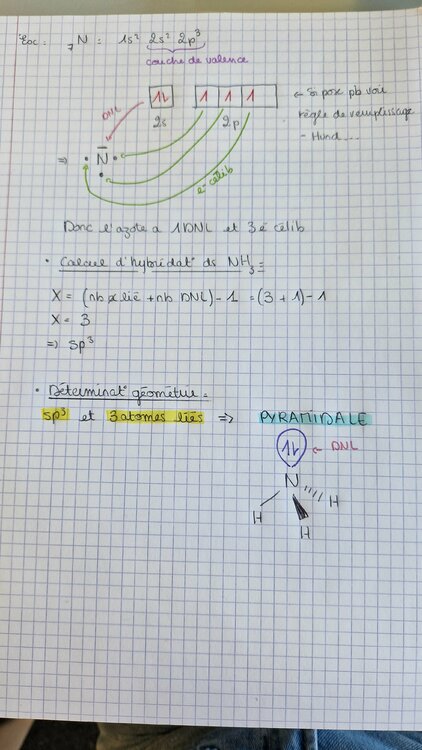 Exo : ₇N : 1s² 2s² 2p³
couche de valence
DNL
1↓ 1 1 1
← Si pose pb voir
2s 2p
règle de remplissage
- Hund....
⇒ · N̄ ·
e- célib
Donc l'azote a 1 DNL et 3 é célib
• Calcul d'hybridat° ds NH₃ :
X = (nb x lié + nb DNL) - 1 = (3 + 1) - 1
X = 3
⇒ sp³
• Déterminat° géométrie :
sp³ et 3 atomes liés ⇒ PYRAMIDALE
1↓ ← DNL
N
H H
H